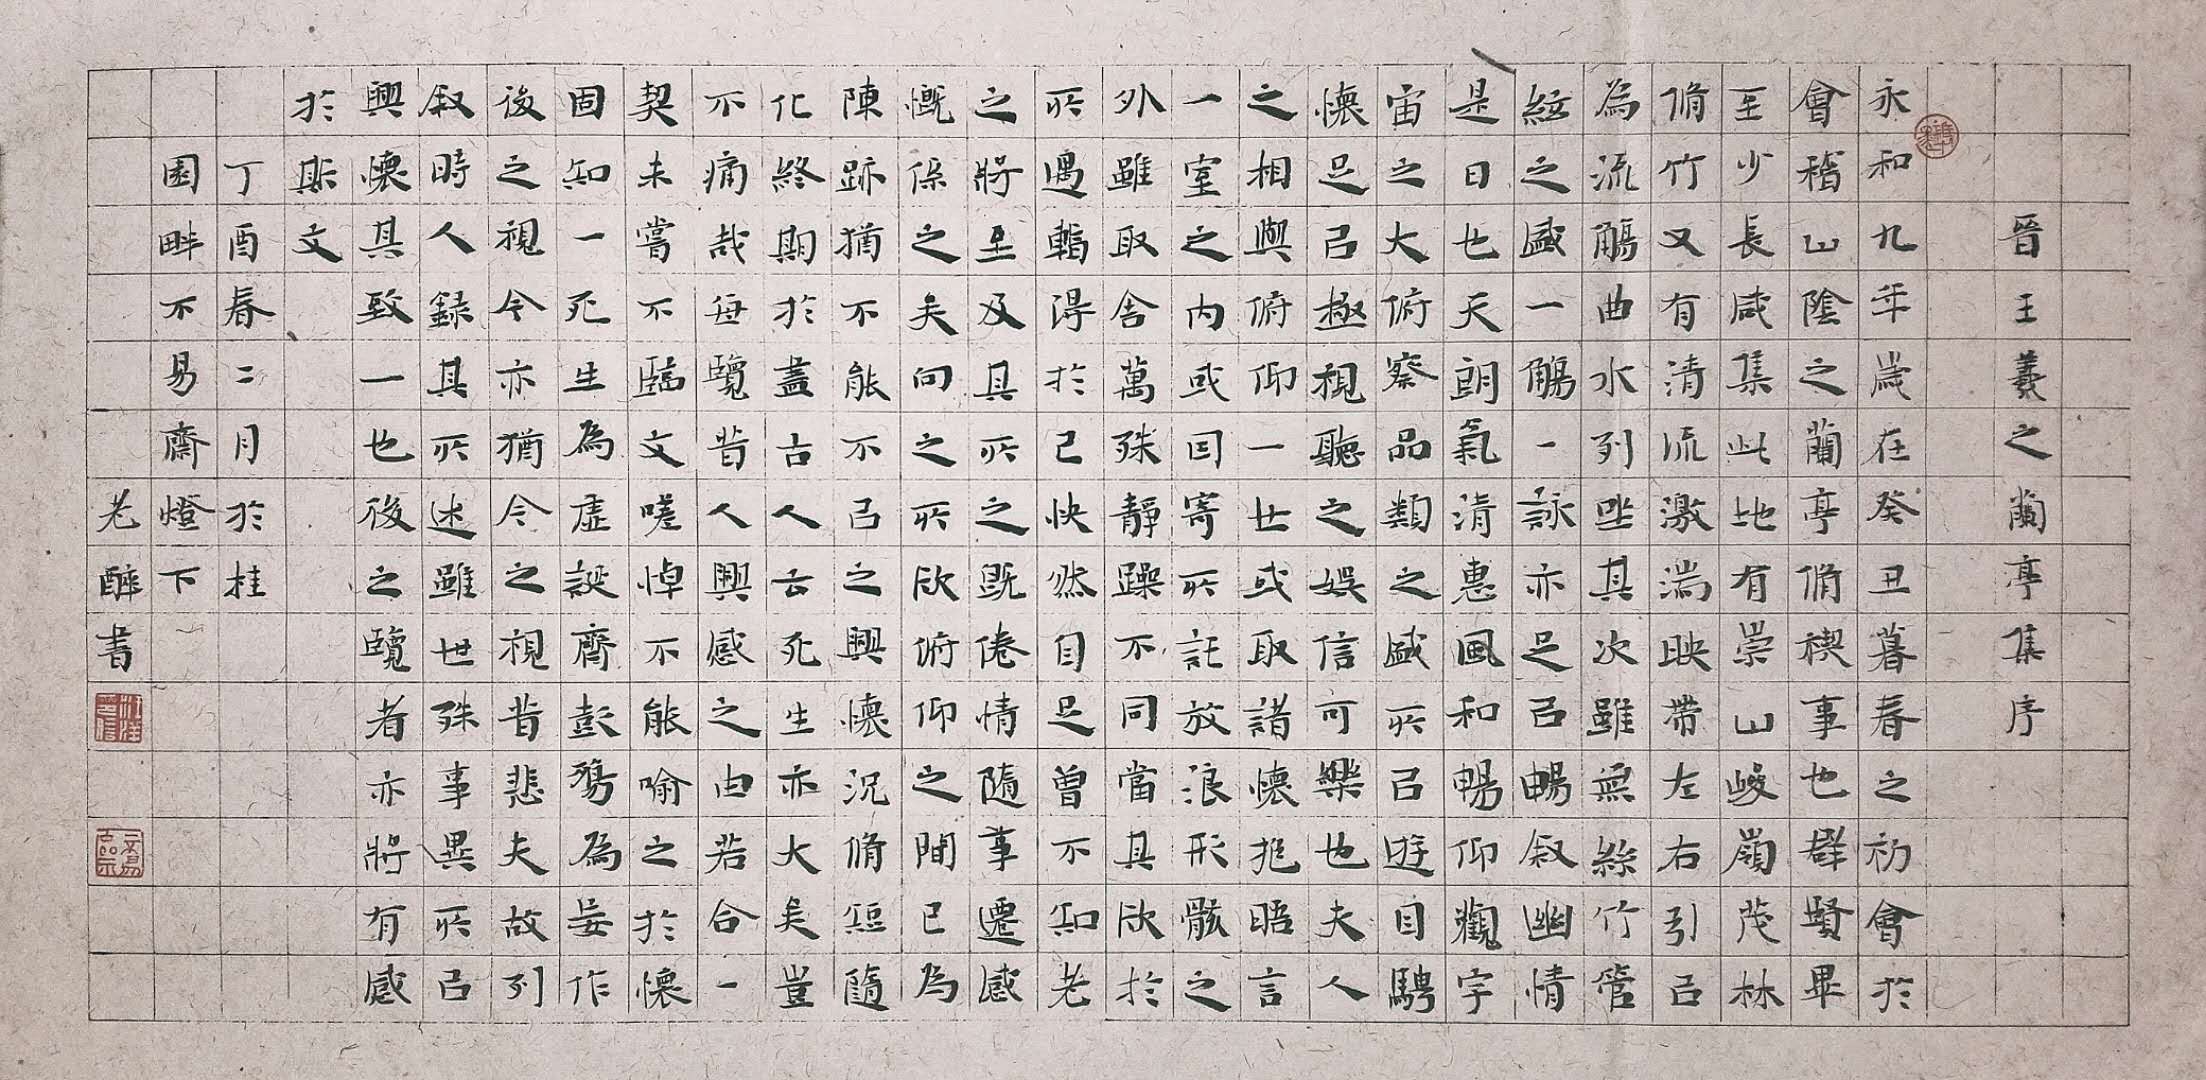 晉王羲之蘭亭集序
永和九年歲在癸丑暮春之初會於
會稽山陰之蘭亭脩禊事也群賢畢
至少長咸集此地有崇山峻嶺茂林
脩竹又有清流激湍映帶左右引㠯
為流觴曲水列坐其次雖無絲竹管
絃之盛一觴一詠亦足㠯暢叙幽情
是日也天朗氣清惠風和暢仰觀宇
宙之大俯察品類之盛所㠯遊目騁
懷足㠯極視聽之娛信可樂也夫人
之相與俯仰一世或取諸懷抱晤言
一室之內或因寄所託放浪形骸之
外雖取舍萬殊靜躁不同當其欣於
所遇輒得於己快然自足曾不知老
之將至及其所之既倦情隨事遷感
慨係之矣向之所欣俯仰之間已為
陳跡猶不能不㠯之興懷況脩短隨
化終期於盡古人云死生亦大矣豈
不痛哉每覽昔人興感之由若合一
契未嘗不臨文嗟悼不能喻之於懷
固知一死生為虛誕齊彭殤為妄作
後之視今亦猶今之視昔悲夫故列
叙時人錄其所述雖世殊事異所㠯
興懷其致一也後之覽者亦將有感
於斯文
丁酉春二月於桂
園畔不易齋燈下
老醉書